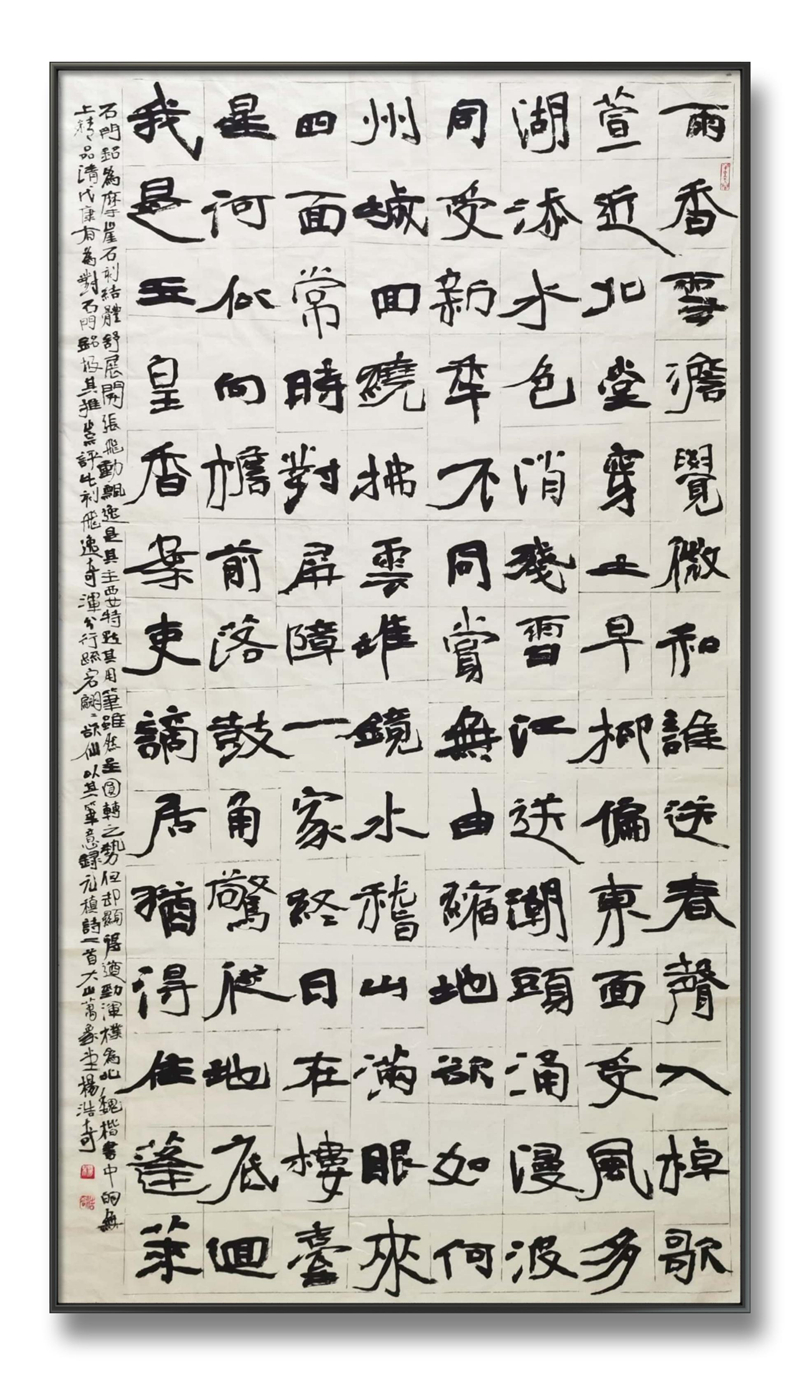 雨香雲澹覺微和誰送春聲入棹歌
萱近北堂穿土早柳偏東面受風多
湖添水色消殘雪江送潮頭涌漫波
同受新年不同賞無由縮地欲如何
州城回繞拂雲堆鏡水稽山滿眼來
四面常時對屏障一家終日在樓臺
星河似向檐前落鼓角驚從地底迴
我是玉皇香案吏謫居猶得住蓬萊
石門銘為摩崖石刻結體舒展開張飛動飄逸是其主要特點其用筆雖然是圓轉之勢但却顯得遒勁渾樸為北魏楷書中的無
上精品清代康有為對石門銘极其推崇評此刻飛逸奇渾分行疏宕翩翩欲仙以其筆意錄元稹詩二首大山萬象堂楊浩奇